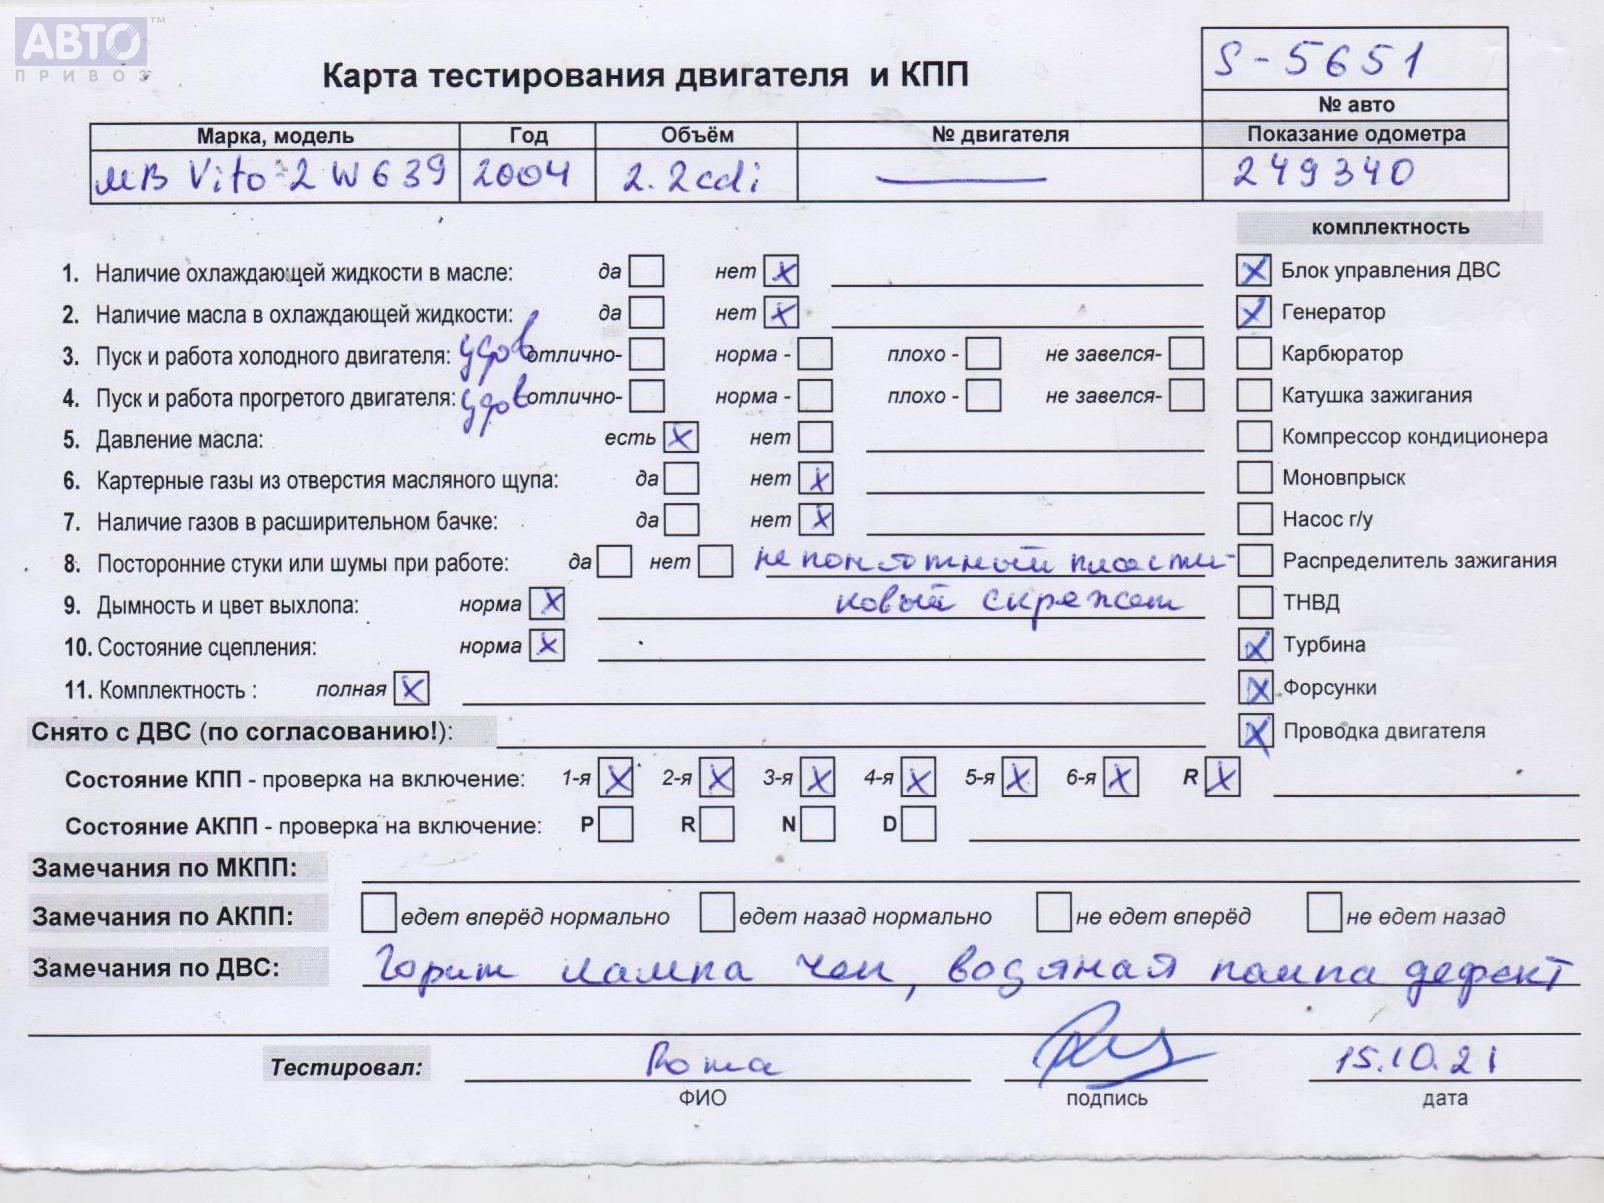 АВТО™
ПРИВОЗ
Карта тестирования двигателя и КПП
S-5651
№ авто
Марка, модель Год Объём № двигателя Показание одометра
MB Vito-2 W639 2004 2.2cdi — 249340
комплектность
1. Наличие охлаждающей жидкости в масле: да нет x
Блок управления ДВС x
2. Наличие масла в охлаждающей жидкости: да нет x
Генератор x
3. Пуск и работа холодного двигателя: удов отлично- норма - плохо - не завелся-
Карбюратор
4. Пуск и работа прогретого двигателя: удов отлично- норма - плохо - не завелся-
Катушка зажигания
5. Давление масла: есть x нет
Компрессор кондиционера
6. Картерные газы из отверстия масляного щупа: да нет x
Моновпрыск
7. Наличие газов в расширительном бачке: да нет x
Насос г/у
8. Посторонние стуки или шумы при работе: да нет не понятный пласти-
Распределитель зажигания
9. Дымность и цвет выхлопа: норма x ковый скрежет
ТНВД
10. Состояние сцепления: норма x
Турбина x
11. Комплектность : полная x
Форсунки x
Снято с ДВС (по согласованию!):
Проводка двигателя x
Состояние КПП - проверка на включение: 1-я x 2-я x 3-я x 4-я x 5-я x 6-я x R x
Состояние АКПП - проверка на включение: P R N D
Замечания по МКПП:
Замечания по АКПП: едет вперёд нормально едет назад нормально не едет вперёд не едет назад
Замечания по ДВС: Горит лампа чек, водяная помпа дефект
Тестировал: Рома 15.10.21
ФИО подпись дата